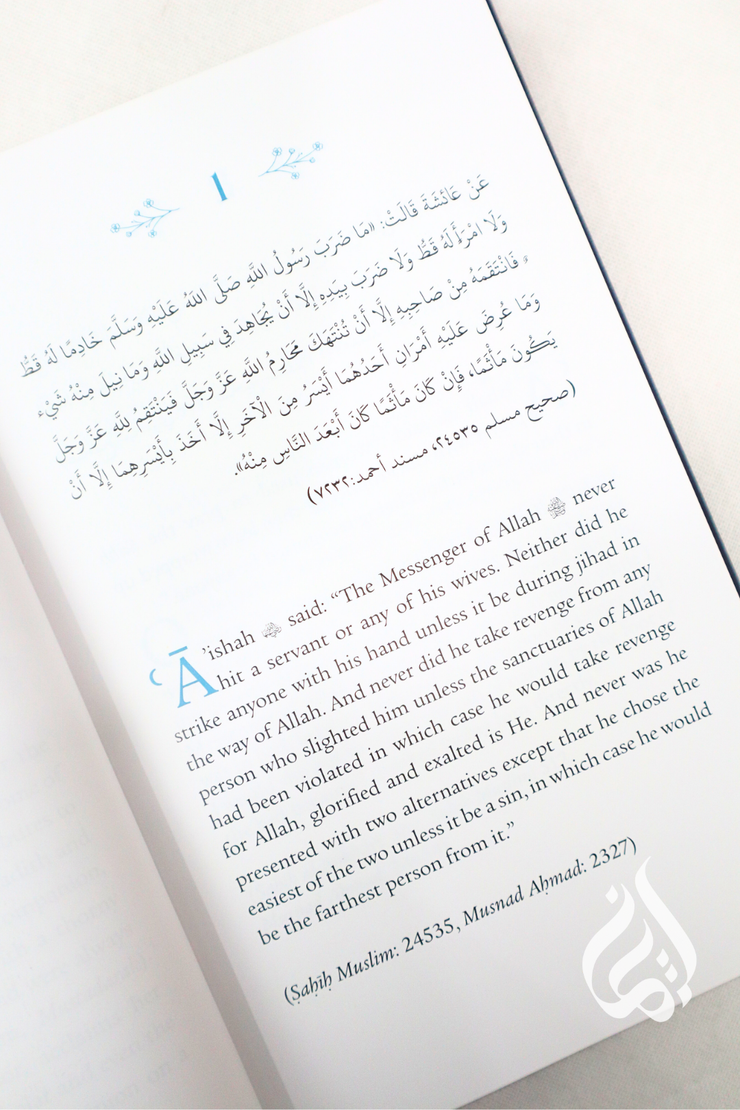 ١
عَنْ عَائشَةَ قَالَتْ: «مَا ضَرَبَ رَسُولُ اللَّهِ صَلَّى اللَّهُ عَلَيْهِ وَسَلَّمَ خَادِمًا لَهُ قَطُّ
وَلَا امْرَأَةً لَهُ قَطُّ وَلَا ضَرَبَ بِيَدِهِ إِلَّا أَنْ يُجَاهِدَ فِي سَبِيلِ اللَّهِ وَمَا نِيلَ مِنْهُ شَيْء
فَانْتَقَمَهُ مِنْ صَاحِبِهِ إِلَّا أَنْ تُنْتَهَكَ مَحَارِمُ اللَّهِ عَزَّ وَجَلَّ فَيَنْتَقِمُ لِلَّهِ عَزَّ وَجَلَّ
وَمَا عُرِضَ عَلَيْهِ أَمْرَانِ أَحَدُهُمَا أَيْسَرُ مِنَ الْآخَرِ إِلَّا أَخَذَ بِأَيْسَرِهِمَا إِلَّا أَنْ
يَكُونَ مَأْثَمًا، فَإِنْ كَانَ مَأْثَمًا كَانَ أَبْعَدَ النَّاسِ مِنْهُ».
(صحيح مسلم ٢٤٥٣٥، مسند أحمد:٧٢٣٢)
ʿĀ’ishah said: “The Messenger of Allah ﷺ never
hit a servant or any of his wives. Neither did he
strike anyone with his hand unless it be during jihad in
the way of Allah. And never did he take revenge from any
person who slighted him unless the sanctuaries of Allah
had been violated in which case he would take revenge
for Allah, glorified and exalted is He. And never was he
presented with two alternatives except that he chose the
easiest of the two unless it be a sin, in which case he would
be the farthest person from it.”
(Ṣaḥīḥ Muslim: 24535, Musnad Aḥmad: 2327)